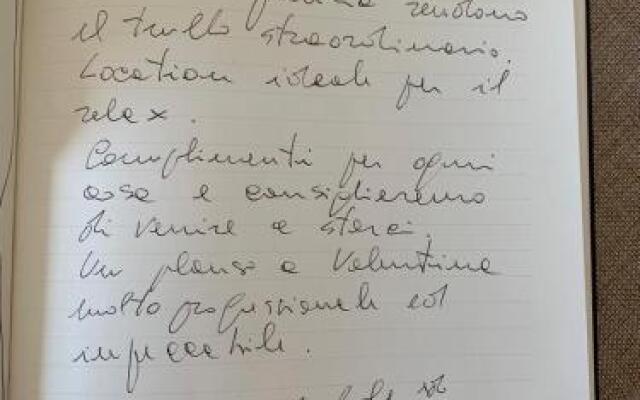 rendono
il trullo straordinario.
Location ideale per il
relax.
Complimenti per ogni
cosa e consiglieremo
di venire a starci.
Un plauso a Valentina
molto professionale ed
impeccabile.